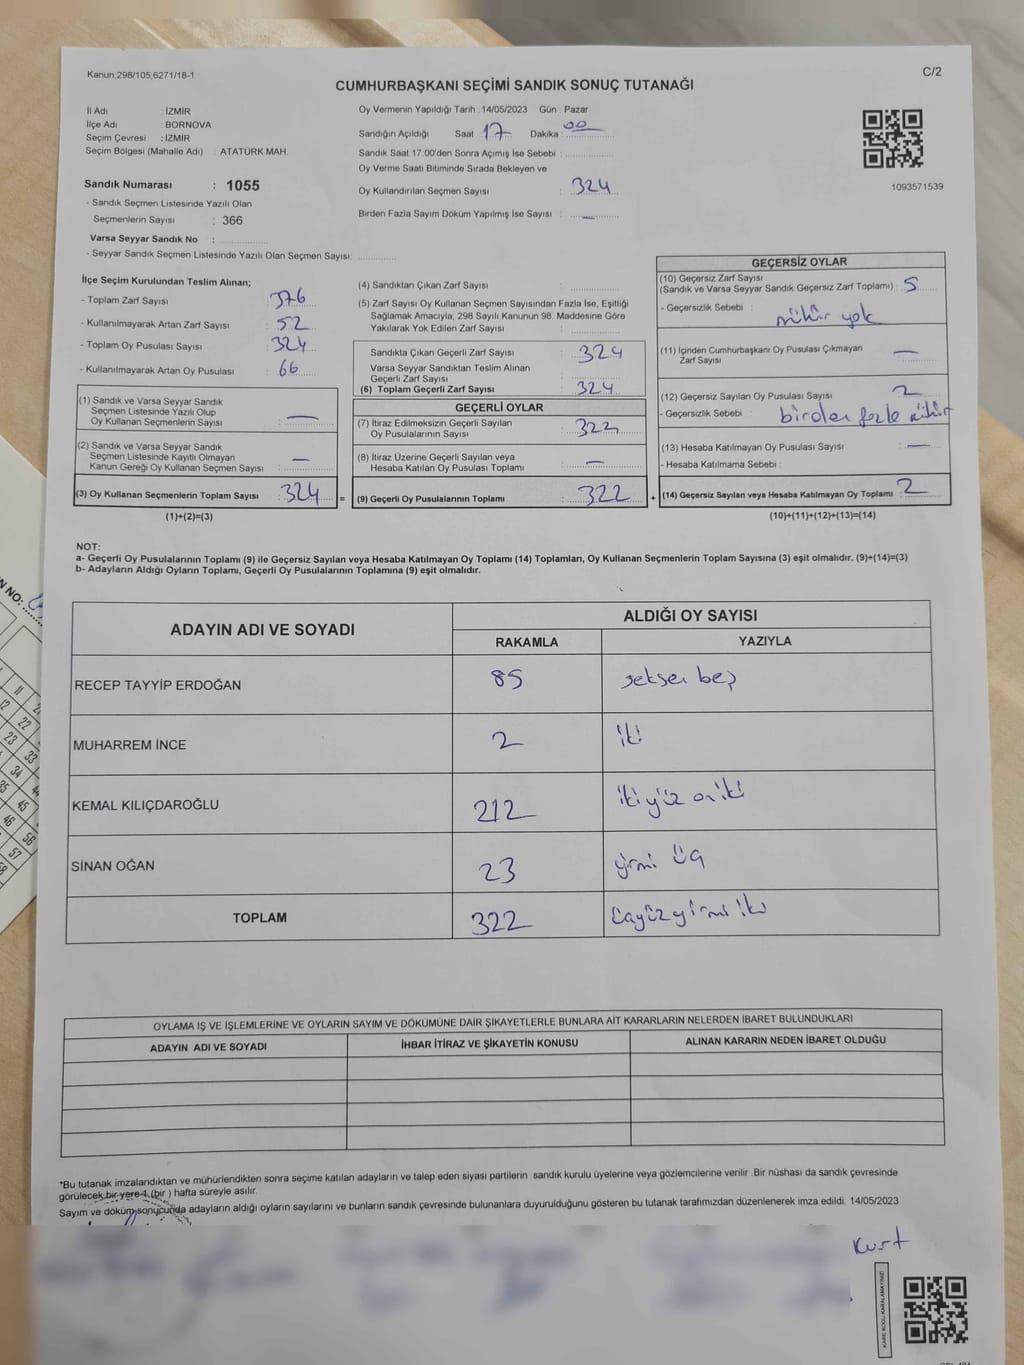 Kanun;298/105;6271/18-1
C/2
CUMHURBAŞKANI SEÇİMİ SANDIK SONUÇ TUTANAĞI
İl Adı : İZMİR
İlçe Adı : BORNOVA
Seçim Çevresi : İZMİR
Seçim Bölgesi (Mahalle Adı) : ATATÜRK MAH.
Sandık Numarası : 1055
- Sandık Seçmen Listesinde Yazılı Olan
Seçmenlerin Sayısı : 366
Varsa Seyyar Sandık No :
- Seyyar Sandık Seçmen Listesinde Yazılı Olan Seçmen Sayısı:
Oy Vermenin Yapıldığı Tarih : 14/05/2023 Gün : Pazar
Sandığın Açıldığı Saat : 17 Dakika : 00
Sandık Saat 17:00'den Sonra Açımış İse Sebebi :
Oy Verme Saati Bitiminde Sırada Bekleyen ve
Oy Kullandırılan Seçmen Sayısı : 324
Birden Fazla Sayım Döküm Yapılmış İse Sayısı : —
1093571539
İlçe Seçim Kurulundan Teslim Alınan;
- Toplam Zarf Sayısı : 376
- Kullanılmayarak Artan Zarf Sayısı : 52
- Toplam Oy Pusulası Sayısı : 324
- Kullanılmayarak Artan Oy Pusulası : 66
(1) Sandık ve Varsa Seyyar Sandık
Seçmen Listesinde Yazılı Olup
Oy Kullanan Seçmenlerin Sayısı : —
(2) Sandık ve Varsa Seyyar Sandık
Seçmen Listesinde Kayıtlı Olmayan
Kanun Gereği Oy Kullanan Seçmen Sayısı : —
(3) Oy Kullanan Seçmenlerin Toplam Sayısı : 324 =
(1)+(2)=(3)
(4) Sandıktan Çıkan Zarf Sayısı :
(5) Zarf Sayısı Oy Kullanan Seçmen Sayısından Fazla İse, Eşitliği
Sağlamak Amacıyla, 298 Sayılı Kanunun 98. Maddesine Göre
Yakılarak Yok Edilen Zarf Sayısı :
Sandıkta Çıkan Geçerli Zarf Sayısı : 324
Varsa Seyyar Sandıktan Teslim Alınan
Geçerli Zarf Sayısı :
(6) Toplam Geçerli Zarf Sayısı : 324
GEÇERLİ OYLAR
(7) İtiraz Edilmeksizin Geçerli Sayılan
Oy Pusulalarının Sayısı : 322
(8) İtiraz Üzerine Geçerli Sayılan veya
Hesaba Katılan Oy Pusulası Toplamı : —
(9) Geçerli Oy Pusulalarının Toplamı : 322 +
GEÇERSİZ OYLAR
(10) Geçersiz Zarf Sayısı
(Sandık ve Varsa Seyyar Sandık Geçersiz Zarf Toplamı) : 5
- Geçersizlik Sebebi : mühür yok
(11) İçinden Cumhurbaşkanı Oy Pusulası Çıkmayan
Zarf Sayısı : —
(12) Geçersiz Sayılan Oy Pusulası Sayısı : 2
- Geçersizlik Sebebi : birden fazla mühür
(13) Hesaba Katılmayan Oy Pusulası Sayısı : —
- Hesaba Katılmama Sebebi :
(14) Geçersiz Sayılan veya Hesaba Katılmayan Oy Toplamı : 2
(10)+(11)+(12)+(13)=(14)
NOT:
a- Geçerli Oy Pusulalarının Toplamı (9) ile Geçersiz Sayılan veya Hesaba Katılmayan Oy Toplamı (14) Toplamları, Oy Kullanan Seçmenlerin Toplam Sayısına (3) eşit olmalıdır. (9)+(14)=(3)
b- Adayların Aldığı Oyların Toplamı, Geçerli Oy Pusulalarının Toplamına (9) eşit olmalıdır.
ADAYIN ADI VE SOYADI ALDIĞI OY SAYISI
RAKAMLA YAZIYLA
RECEP TAYYİP ERDOĞAN 85 seksen beş
MUHARREM İNCE 2 iki
KEMAL KILIÇDAROĞLU 212 ikiyüz oniki
SİNAN OĞAN 23 yirmi üç
TOPLAM 322 üçyüzyirmi iki
OYLAMA İŞ VE İŞLEMLERİNE VE OYLARIN SAYIM VE DÖKÜMÜNE DAİR ŞİKAYETLERLE BUNLARA AİT KARARLARIN NELERDEN İBARET BULUNDUKLARI
ADAYIN ADI VE SOYADI İHBAR İTİRAZ VE ŞİKAYETİN KONUSU ALINAN KARARIN NEDEN İBARET OLDUĞU
*Bu tutanak imzalandıktan ve mühürlendikten sonra seçime katılan adayların ve talep eden siyasi partilerin sandık kurulu üyelerine veya gözlemcilerine verilir .Bir nüshası da sandık çevresinde
görülecek bir yere 1 (bir ) hafta süreyle asılır.
Sayım ve döküm sonucunda adayların aldığı oyların sayılarını ve bunların sandık çevresinde bulunanlara duyurulduğunu gösteren bu tutanak tarafımızdan düzenlenerek imza edildi. 14/05/2023
Kurt
KARE KODU KARALAMAYINIZ!